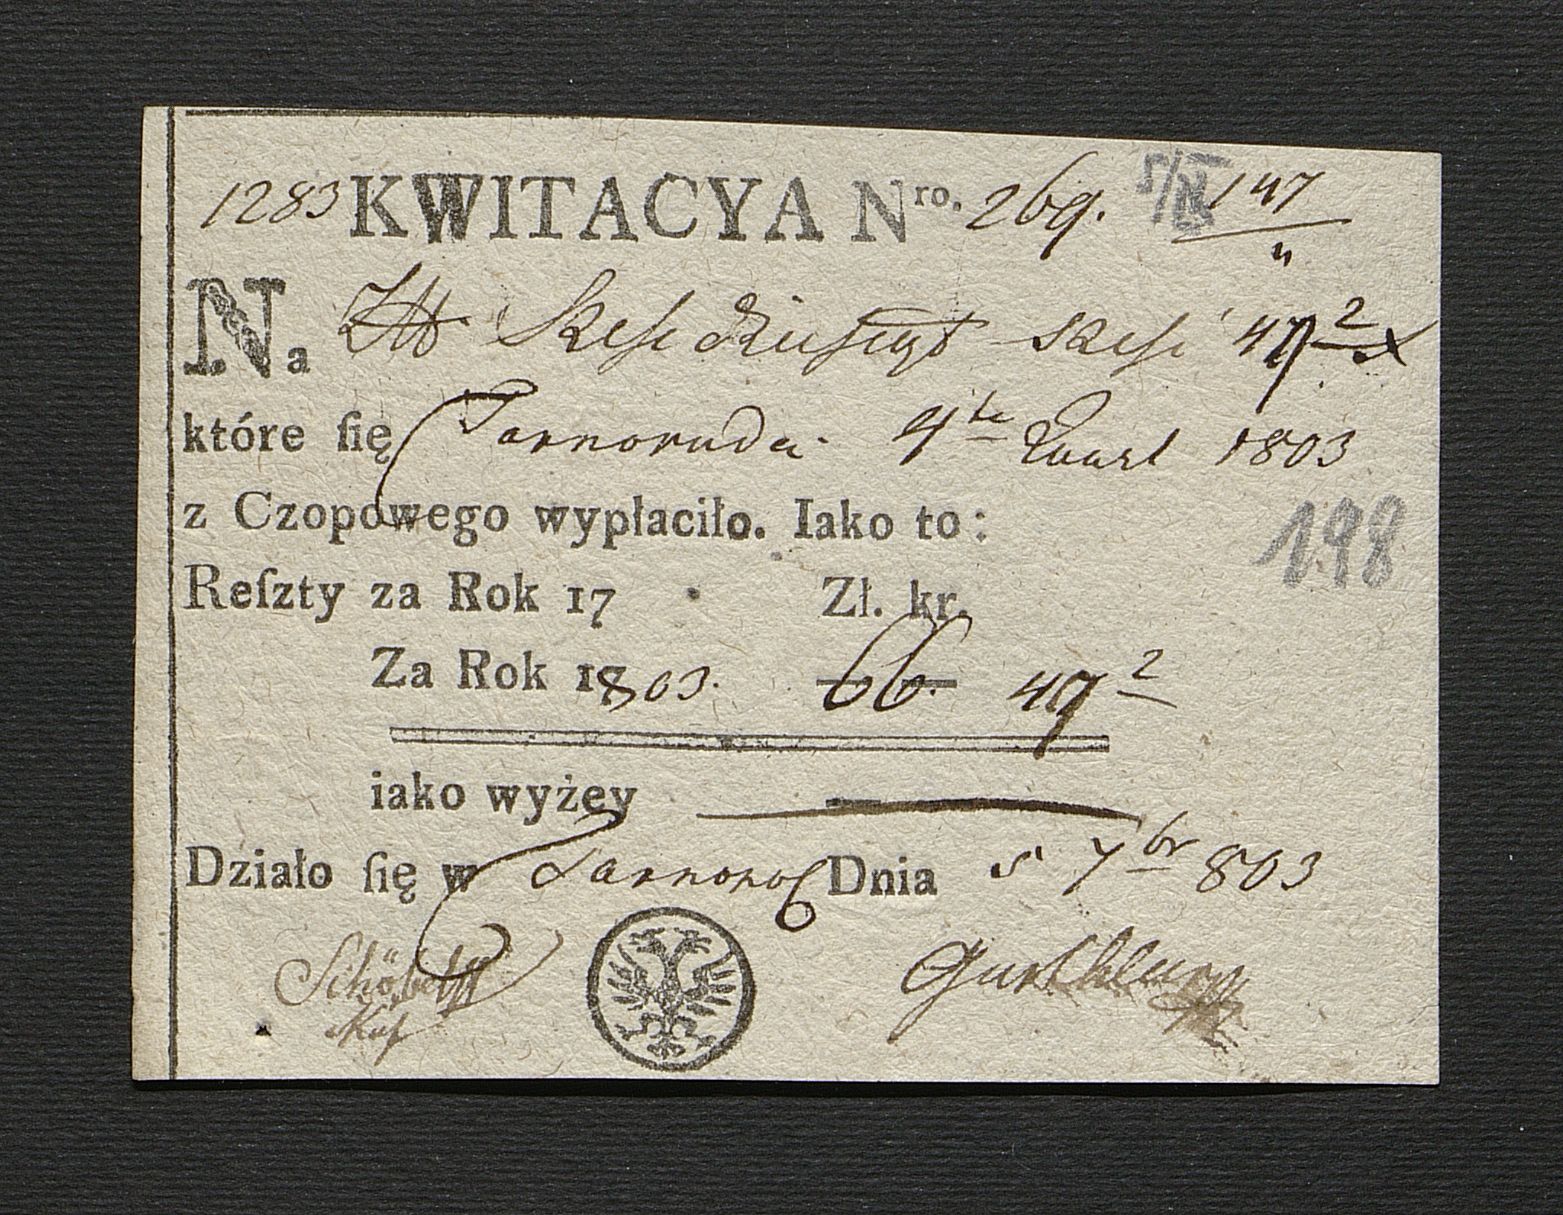 1283 KWITACYA Nro. 269. 147
Na Złt Szesćdziesiąt szesć 49 2 x
które ſię Tarnoruda 4te Quart 1803
z Czopowego wypłaciło. Iako to:
198
Reſzty za Rok 17 Zł. kr.
Za Rok 1803. 66. 49 2
iako wyżey
Działo ſię w Tarnopol Dnia 5 7br 803